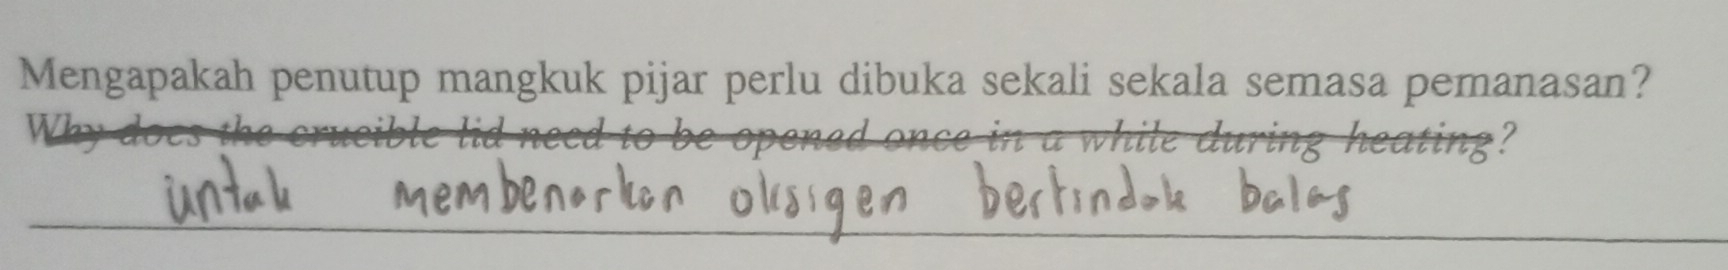 Mengapakah penutup mangkuk pijar perlu dibuka sekali sekala semasa pemanasan?
Why does the crucible lid need to be opened once in a while during heating?
untuk membenarkan oksigen bertindak balas